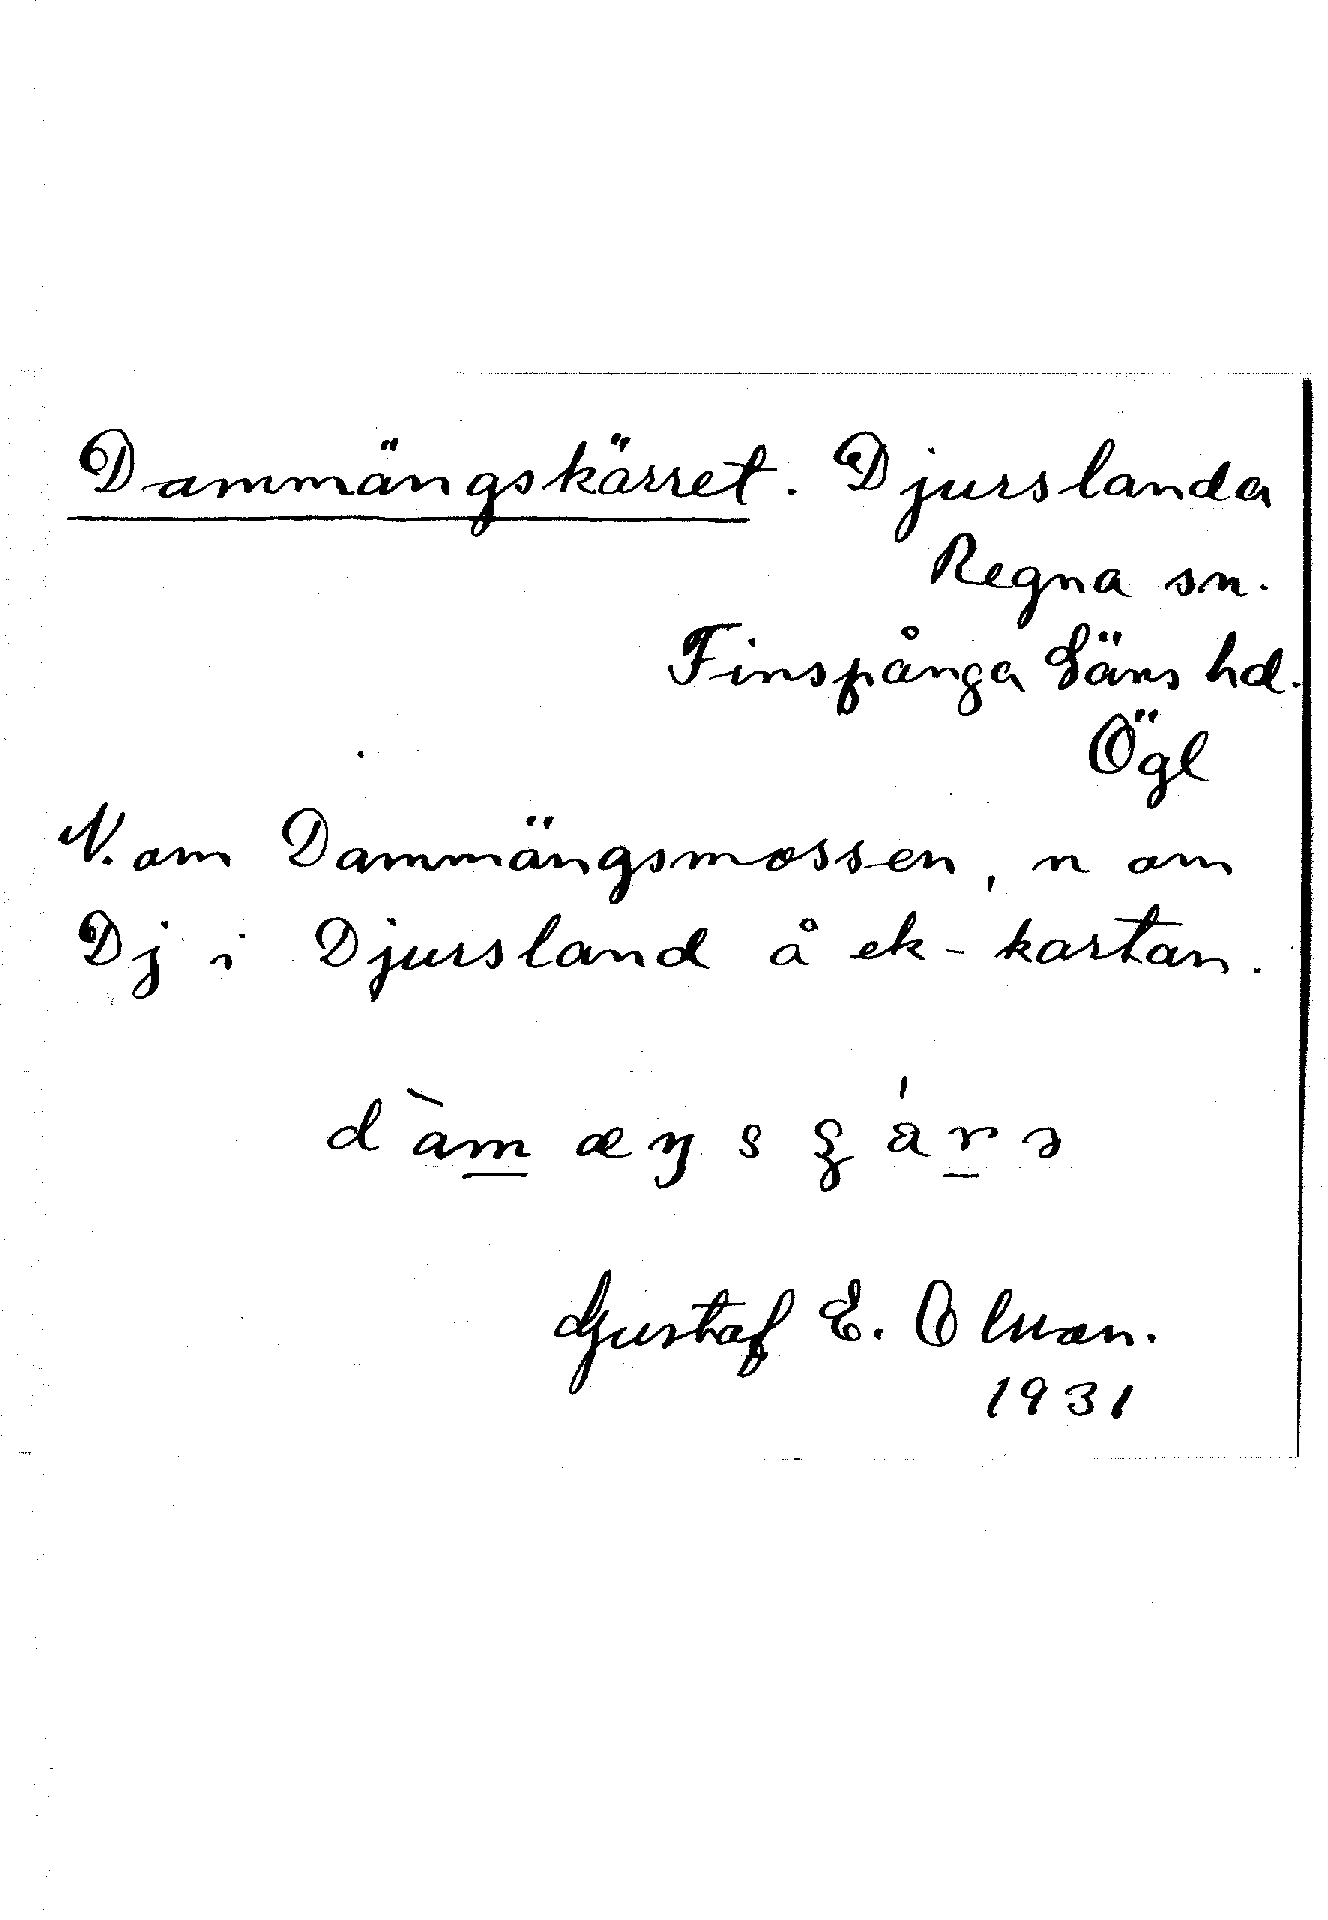 Dammängskärret. Djurslanda
Regna sn.
Finspånga Läns hd.
Ögl
N. om Dammängsmossen, n om
Dj i Djursland å ek-kartan.
Gustaf E. Olsson.
1931